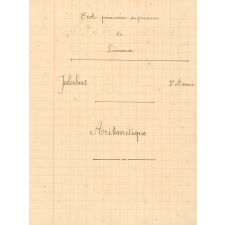 Ecole primaire supérieure
de
Limoux
Jalabert 2e Année
Arithmétique